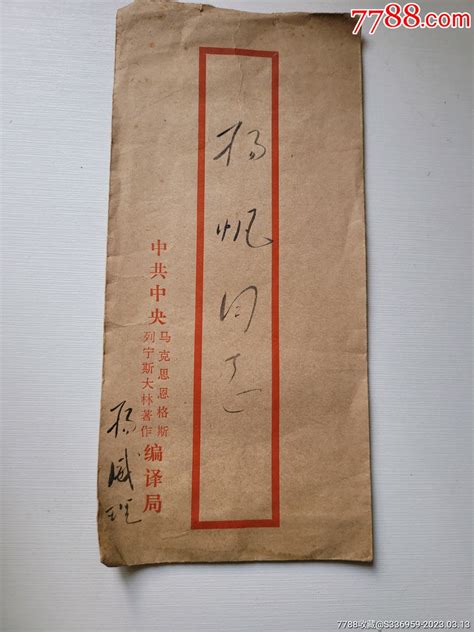 7788.com
杨帆同志
中共中央
马克思恩格斯
列宁斯大林著作
编译局
杨威理
7788收藏@S336959-2023.03.13